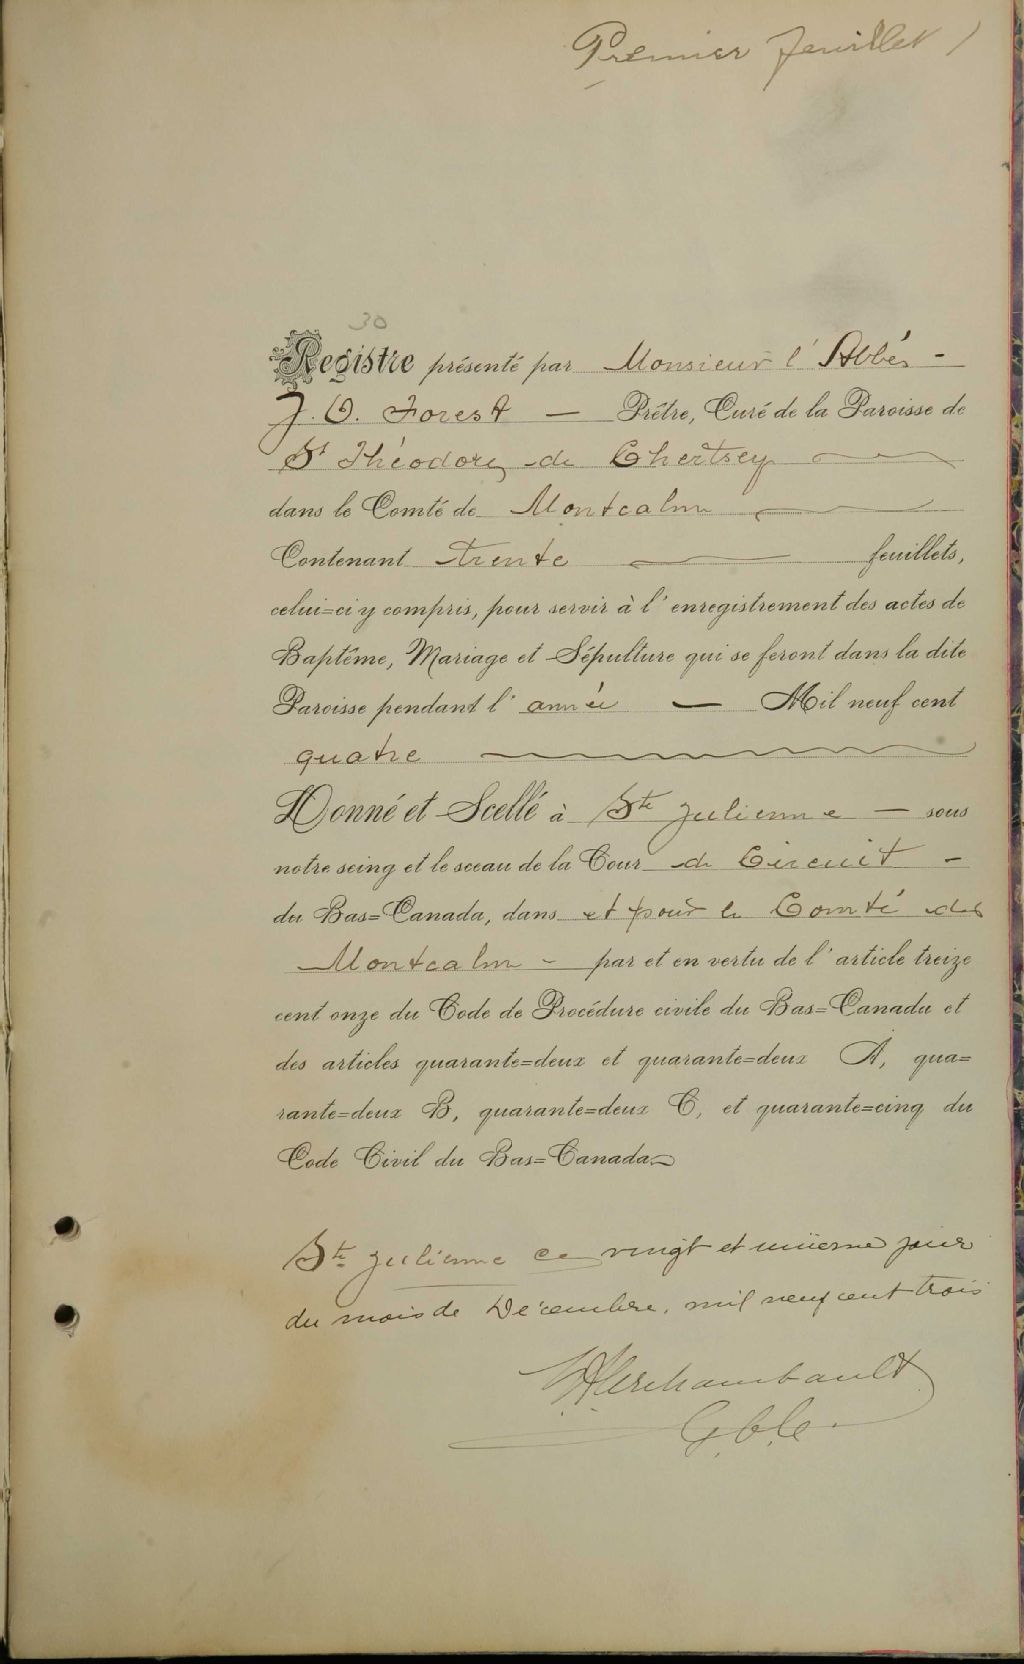 Premier feuillet /
30
Registre présenté par Monsieur l'Abbé -
J. O. Forest — Prêtre, Curé de la Paroisse de
St Théodore de Chertsey
dans le Comté de Montcalm
Contenant trente feuillets,
celui=ci y compris, pour servir à l'enregistrement des actes de
Baptême, Mariage et Sépulture qui se feront dans la dite
Paroisse pendant l'année — Mil neuf cent
quatre
Donné et Scellé à Ste Julienne — sous
notre seing et le sceau de la Cour de Circuit -
du Bas=Canada, dans et pour le Comté de
Montcalm - par et en vertu de l'article treize
cent onze du Code de Procédure civile du Bas=Canada et
des articles quarante=deux et quarante=deux A, qua=
rante=deux B, quarante=deux C, et quarante=cinq du
Code Civil du Bas=Canada
Ste Julienne ce vingt et unième jour
du mois de Décembre, mil neuf cent trois
Archambault